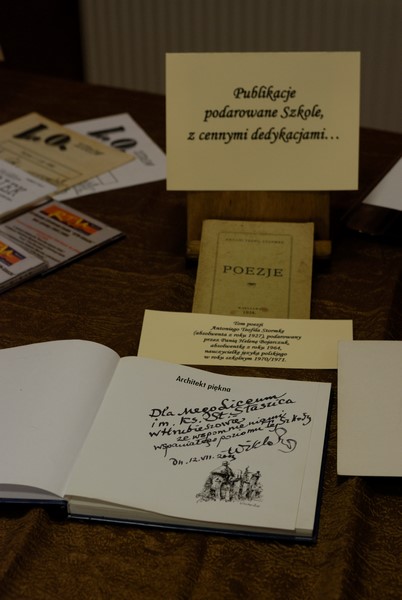 Publikacje
podarowane Szkole,
z cennymi dedykacjami...
Ł.O.
Ł.O.
POEZJE
Tom poezji
Antoniego Teofila
(absolwenta z roku 1927) podarowany
przez Panią Helenę Bojarczuk,
absolwentkę z roku 1964,
nauczycielkę języka polskiego
w roku szkolnym 1970/1971.
Architekt piękna
Dla Mego Liceum
im. Ks. St. Staszica
w Hrubieszowie
ze wspomnieniami
wspaniałego poziomu tej szkoły
Dn. 12.VII.